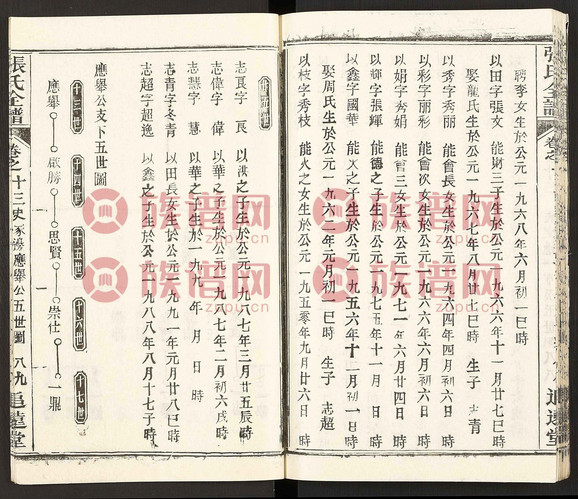 聘李女生於公元一九六八年六月初一巳時
以田字張文 能謝三子生於公元一九六六年十一月廿七巳時
娶龍氏生於公元一九六七年八月廿七巳時 生子 志青
以秀字秀丽 能會長女生於公元一九六四年四月 日 時
以彩字丽彩 能會次女生於公元一九六六年六月 日 時
以娟字秀娟 能會三女生於公元一九七一年六月廿四日 時
以輝字張輝 能德之子生於公元一九七五年十一月 日 時
以鑫字國華 能 之子生於公元一九五六年十二月初一日 時
娶周氏生於公元一九六二年元月初三日 時 生子 志超
以枝字秀枝 能火之女生於公元一九五零年九月廿六日 時
十五世
志良字 良 以洪之子生於公元一九八七年三月廿五辰時
志偉字 偉 以華之子生於公元一九八七年二月初六戌時
志慧字 慧 以華之女生於公元一九九 年 月 日 時
志青字冬青 以田長女生於公元一九九一年元月廿八巳時
志超字超逸 以鑫之子生於公元一九八八年八月十七子時
應舉公支下五世圖
十三世 十四世 十五世 十六世 十七世
應舉 啟勝 思賢 崇仕 一鼎
張氏全譜 卷之十三史 應舉公五世圖 八九 追遠堂